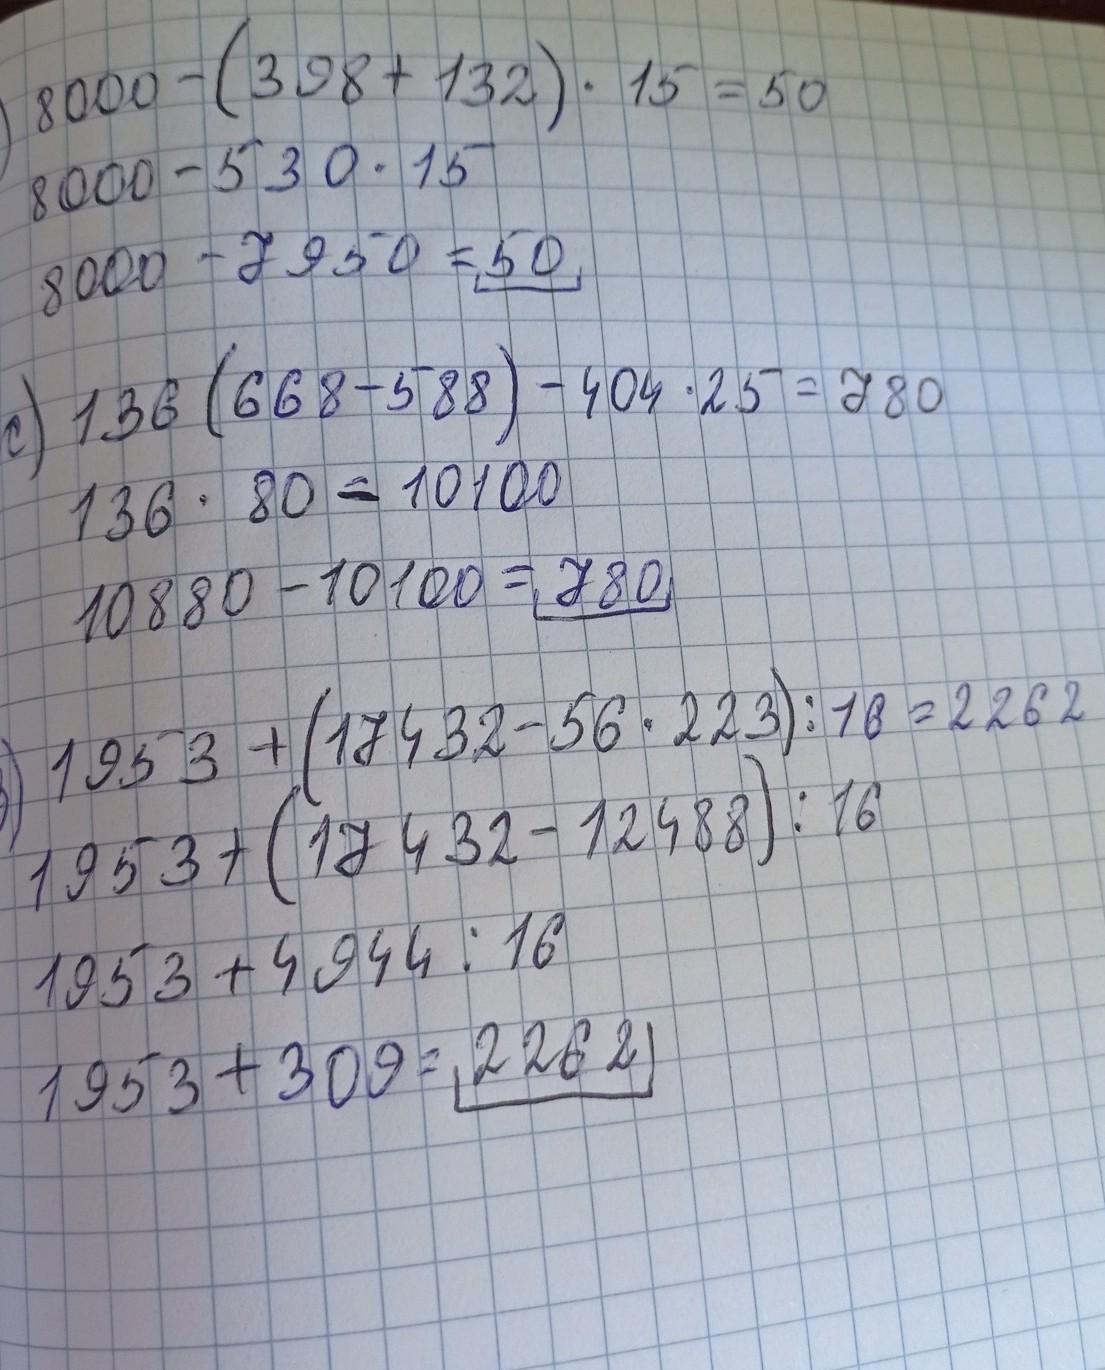 ) 8000 - (398 + 132) · 15 = 50
8000 - 530 · 15
8000 - 7950 = 50
c) 136 (668 - 588) - 404 · 25 = 780
136 · 80 - 10100
10880 - 10100 = 780
) 1953 + (17432 - 56 · 223) : 16 = 2262
1953 + (17432 - 12488) : 16
1953 + 4944 : 16
1953 + 309 = 2262